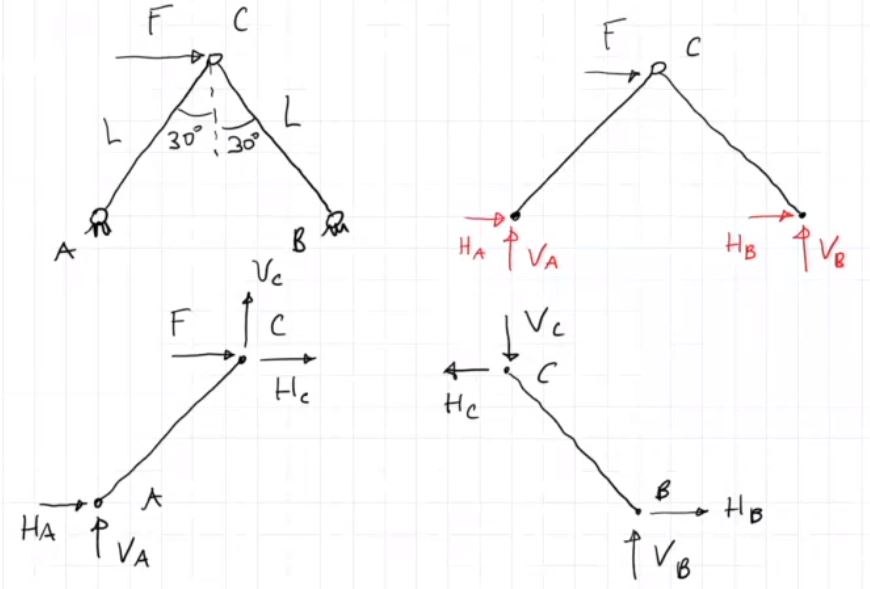 F C
L L
30° 30°
A B
F C
H_A V_A H_B V_B
V_C
F C
H_C
H_A A
V_A
V_C
H_C C
B H_B
V_B